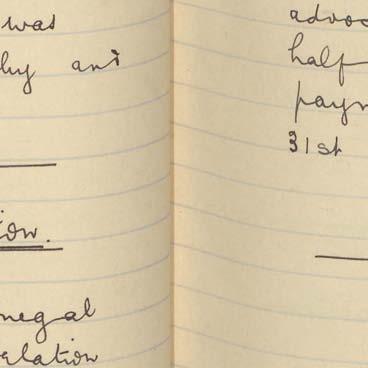 was
hy and
ion.
negal
elation
advoc
half
paym
31st